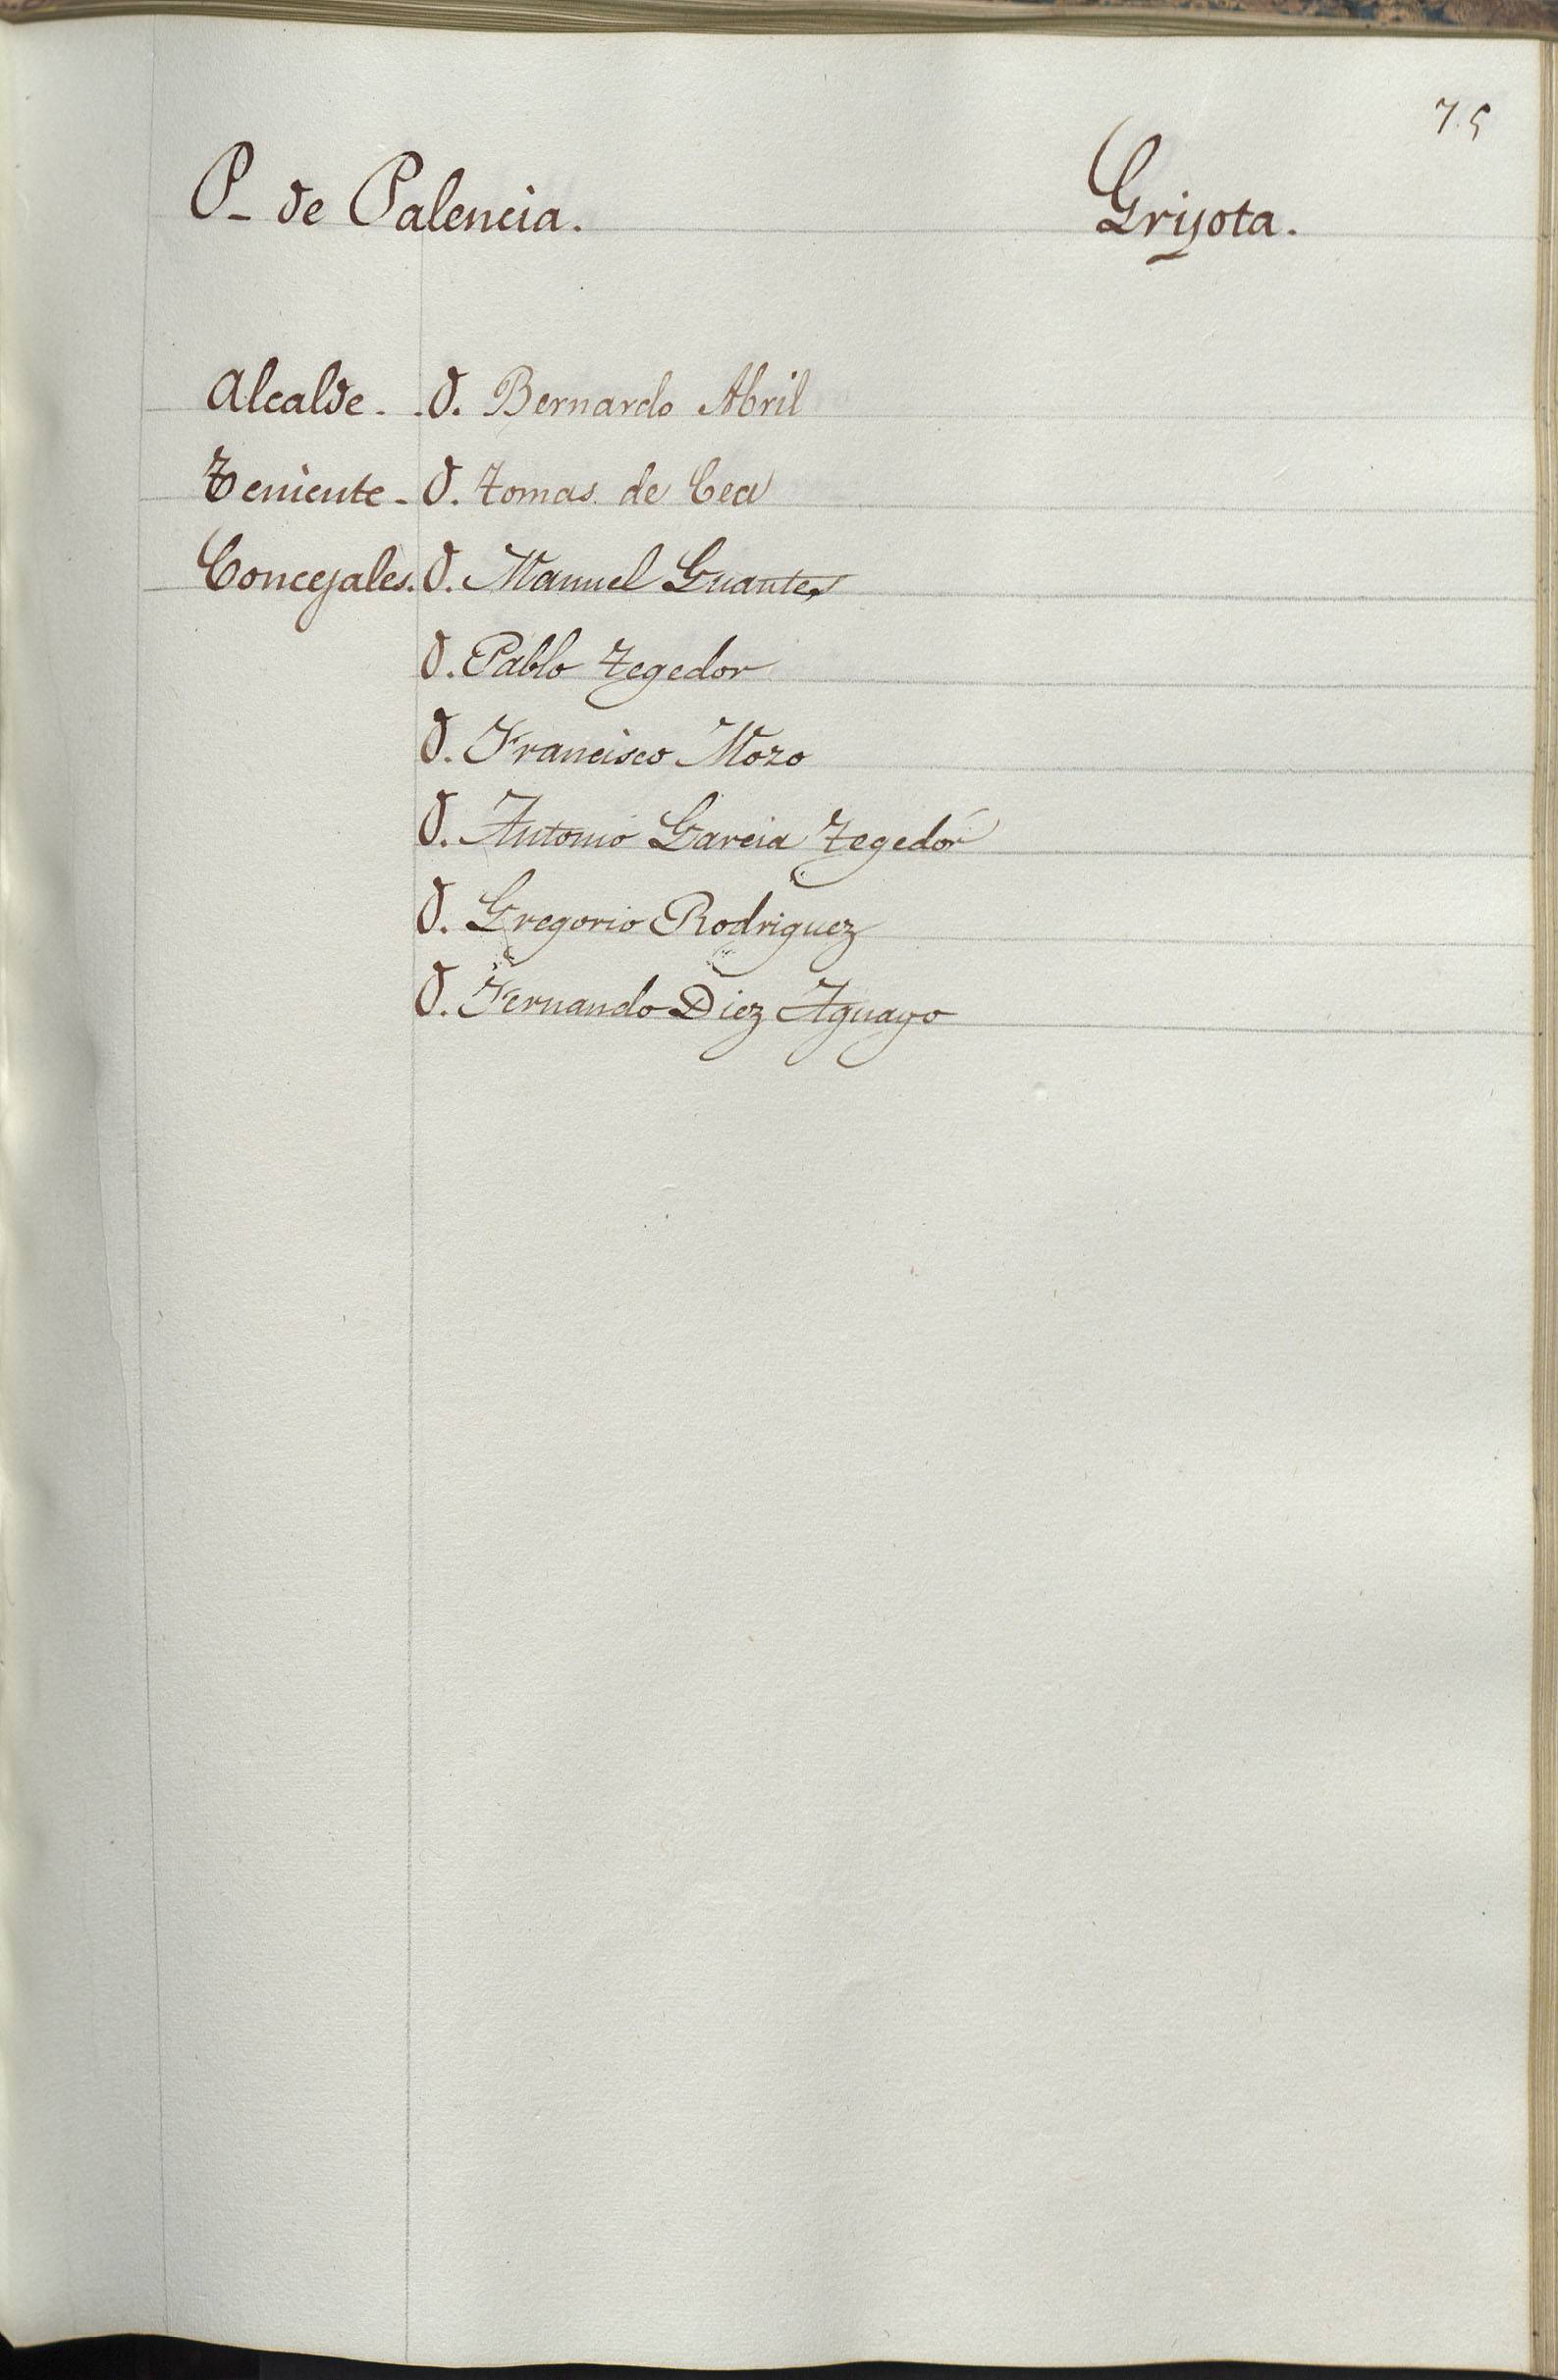 75
P- de Palencia. Grijota.
Alcalde - D. Bernardo Abril
Teniente - D. Tomas de Cea
Concejales. D. Manuel Guantes
D. Pablo Tegedor
D. Francisco Mozo
D. Antonio Garcia Tegedor
D. Gregorio Rodriguez
D. Fernando Diez Aguayo